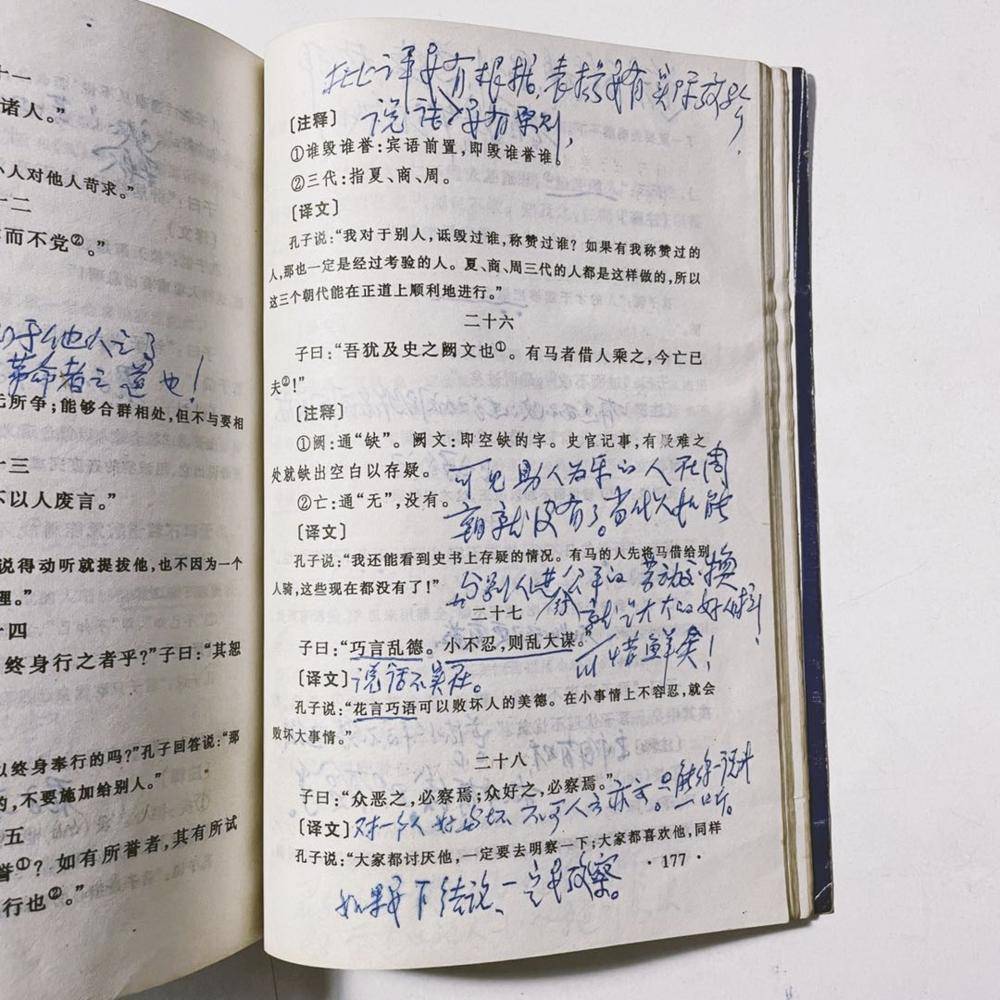 十一
诸人。”
人对他人苛求。”
十二
而不党②。”
于他人之了
革命者之道也！
无所争；能够合群相处，但不与要相
十三
不以人废言。”
说得动听就提拔他，也不因为一个
理。”
十四
终身行之者乎？”子曰：“其恕
以终身奉行的吗？”孔子回答说：“那
的，不要施加给别人。”
五
誉①？如有所誉者，其有所试
行也②。”
批评要有根据，表扬要有实际效
说话要有原则，
〔注释〕
①谁毁谁誉：宾语前置，即毁谁誉谁。
②三代：指夏、商、周。
〔译文〕
孔子说：“我对于别人，诋毁过谁，称赞过谁？如果有我称赞过的
人，那也一定是经过考验的人。夏、商、周三代的人都是这样做的，所以
这三个朝代能在正道上顺利地进行。”
二十六
子曰：“吾犹及史之阙文也①。有马者借人乘之，今亡已
夫②！”
〔注释〕
①阙：通“缺”。阙文：即空缺的字。史官记事，有疑难之
处就缺出空白以存疑。
②亡：通“无”，没有。
可见助人为乐的人在周
朝就没有了。当代人如能
〔译文〕
孔子说：“我还能看到史书上存疑的情况。有马的人先将马借给别
人骑，这些现在都没有了！”
与别人进公平的劳动交换
就算大大的好人
二十七
子曰：“巧言乱德。小不忍，则乱大谋。”
〔译文〕
说话不实在。
孔子说：“花言巧语可以败坏人的美德。在小事情上不容忍，就会
败坏大事情。”
二十八
子曰：“众恶之，必察焉；众好之，必察焉。”
〔译文〕
对一个人好与坏 不可人云亦云。
孔子说：“大家都讨厌他，一定要去明察一下；大家都喜欢他，同样
·177·
如果要下结论、一定要考察。